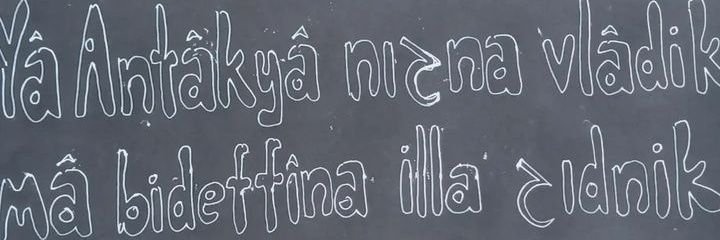 Yâ Antâkyâ nıحna vlâdik
mâ bideffîna illa حıdnik